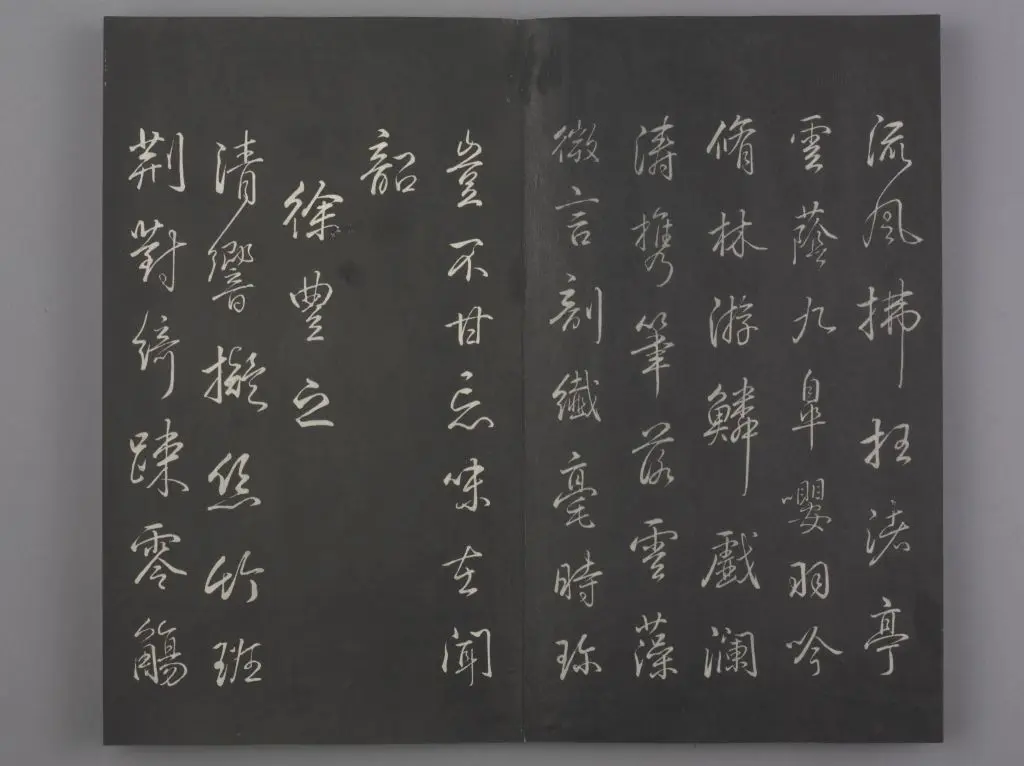 流風拂枉渚亭
雲蔭九皐嚶羽吟
脩林游鱗戲瀾
濤攜筆落雲藻
微言剖纖毫時珍
豈不甘忘味在聞
韶
徐豐之
清響擬絲竹班
荊對綺踈零觴